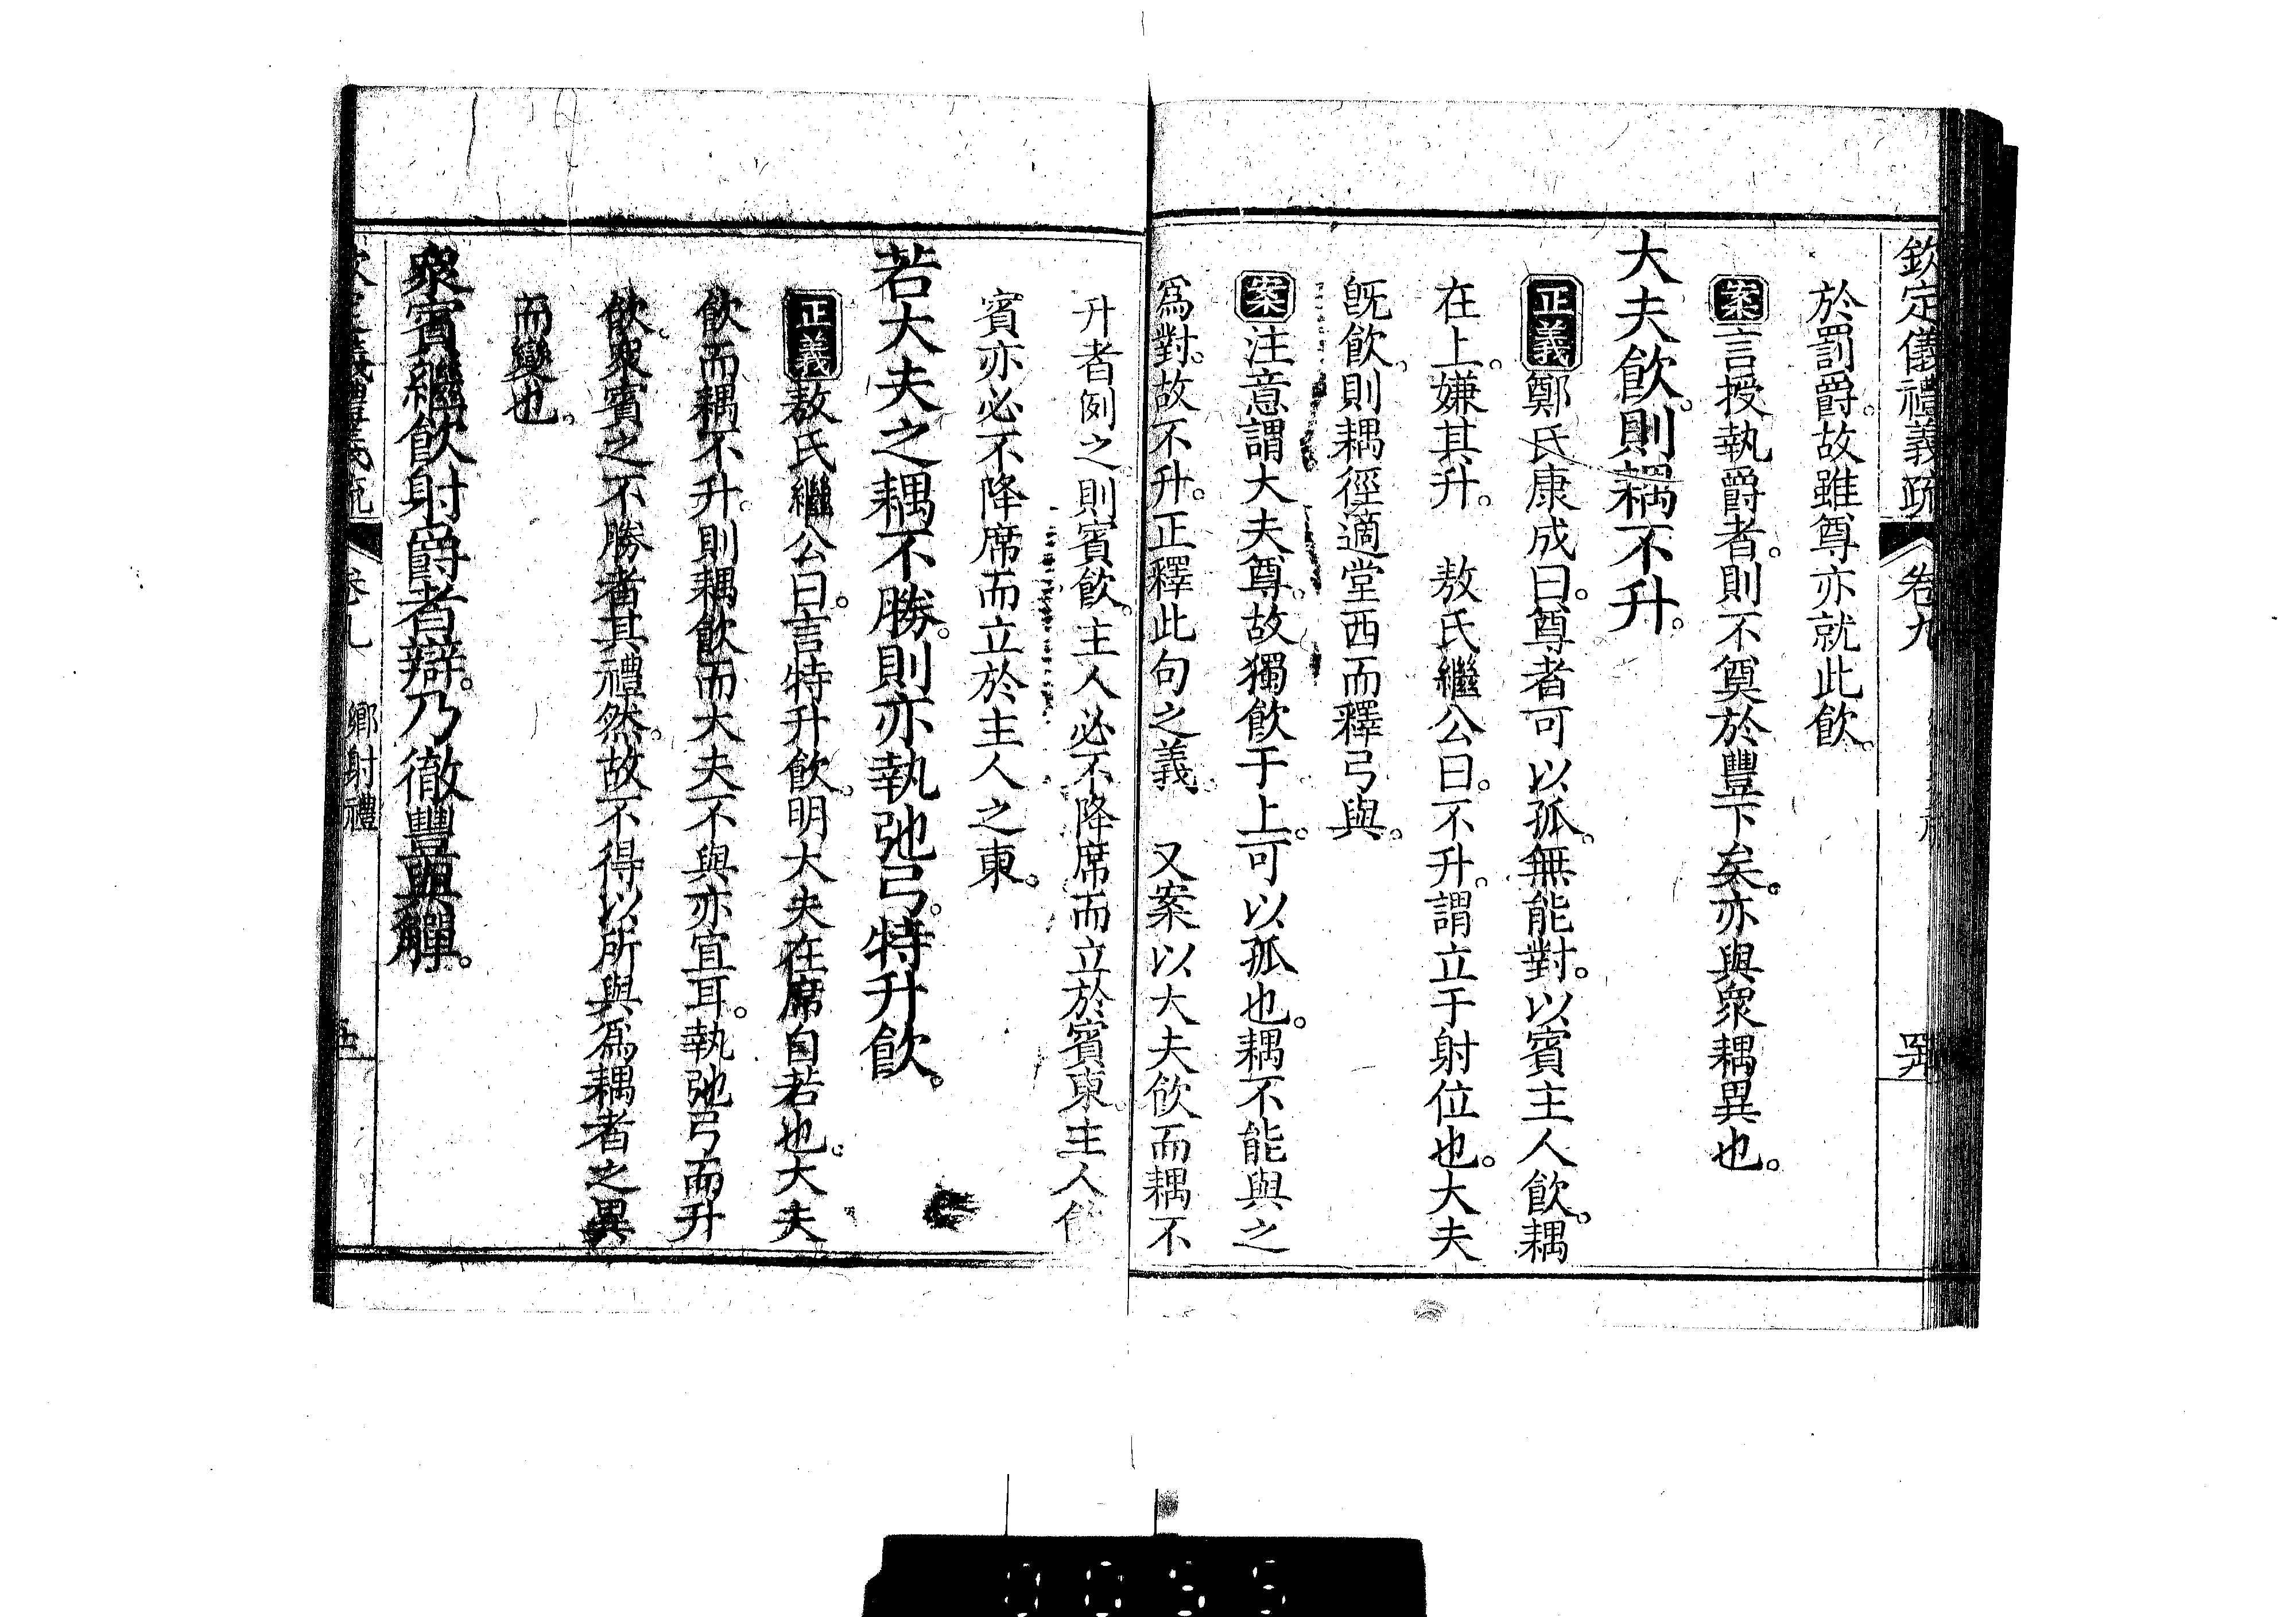 欽定儀禮義疏 卷九
於罰爵。故雖尊亦就此飲。
案言授執爵者。則不奠於豐下矣。亦與衆耦異也。
大夫飲。則耦不升。
正義鄭氏康成曰。尊者可以孤。無能對。以賓主人飲。耦
在上。嫌其升。 敖氏繼公曰。不升。謂立于射位也。大夫
旣飲。則耦徑適堂西而釋弓與。
案注意謂大夫尊。故獨飲于上。可以孤也。耦不能與之
爲對。故不升。正釋此句之義。 又案以大夫飲而耦不
升者例之。則賓飲。主人必不降席而立於賓東。主人飮
賓亦必不降席而立於主人之東。
若大夫之耦不勝。則亦執弛弓。特升飲。
正義敖氏繼公曰。言特升飲。明大夫在席自若也。大夫
飲而耦不升。則耦飲而大夫不與亦宜耳。執弛弓而升
飲。衆賓之不勝者其禮然。故不得以所與爲耦者之異
而變也。
衆賓繼飲射爵者辯。乃徹豐與觶。
卷九 鄉射禮